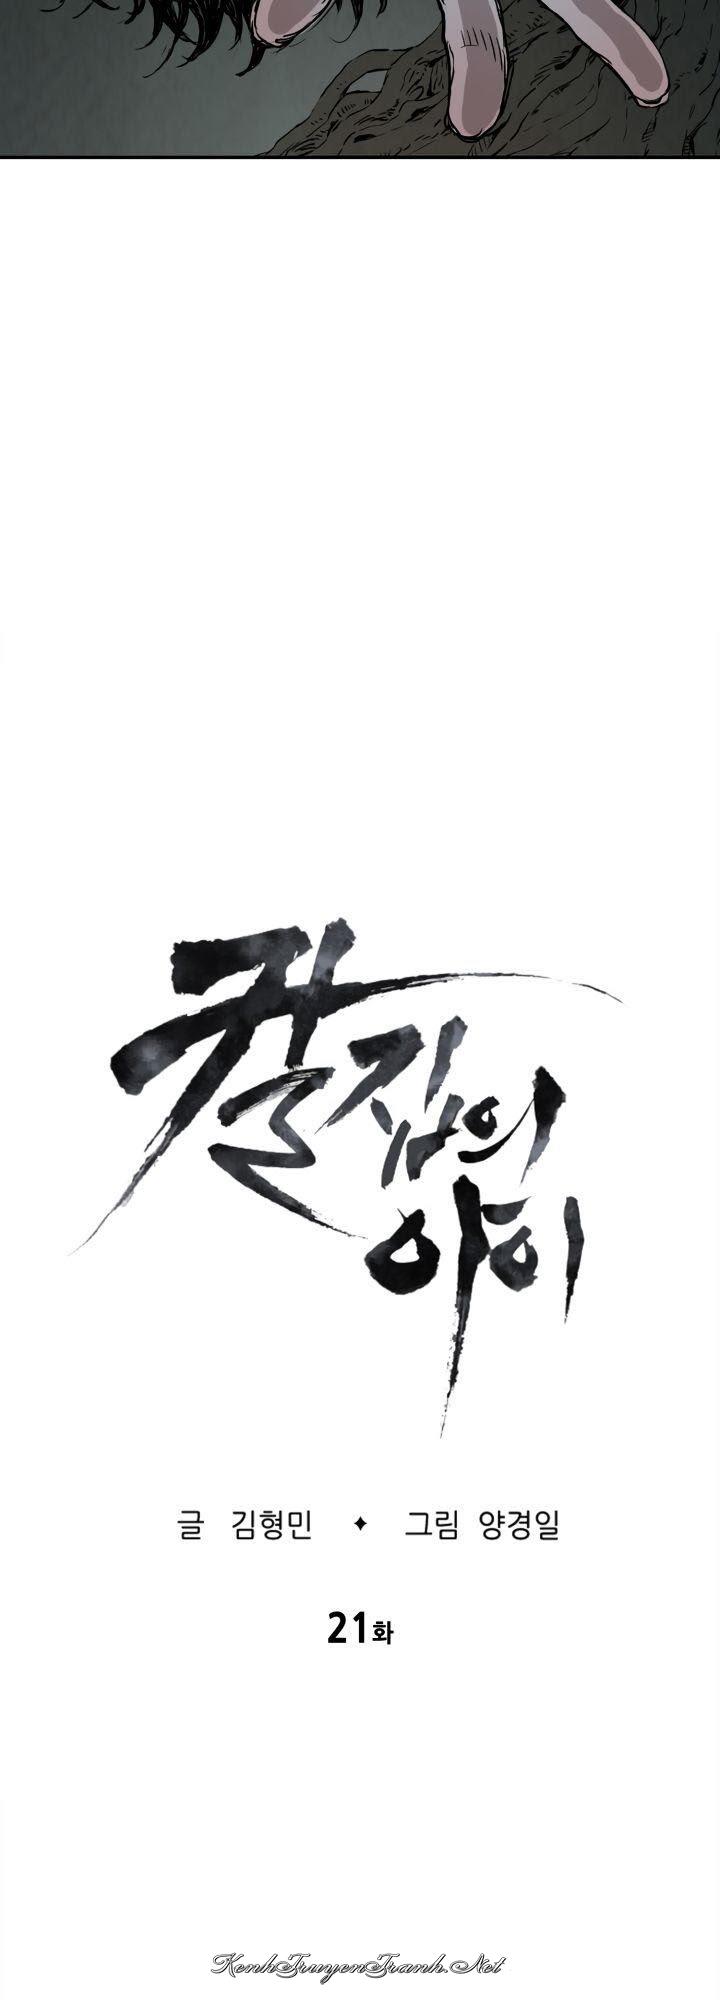 칼집의
아이
글 김형민 ✦ 그림 양경일
21화
KenhTruyenTranh.Net